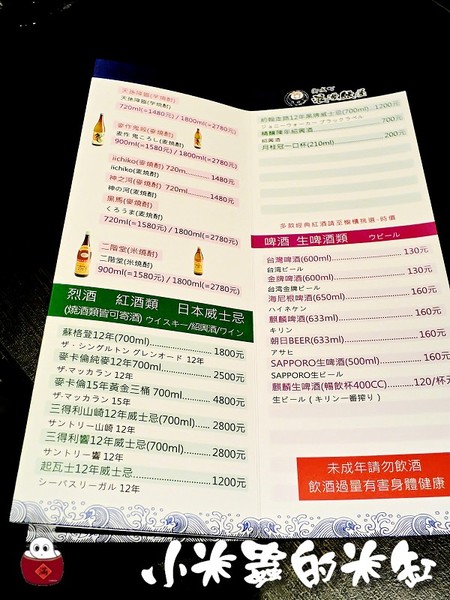 天使隊長(芋焼酎)
天使隊長(芋焼酎)
720ml(=1480元) / 1800ml(=2780元)
麥作鬼殺(麥燒酎)
麦作 鬼ころし(麦焼酎)
900ml(=1580元) / 1800ml(=2780元)
iichiko(麥燒酎) 720m........1480元
iichiko(麦焼酎)
神之河(麥燒酎) 720ml........1480元
神の河(麦焼酎)
黑馬(麥燒酎)
くろうま(麦焼酎)
720ml(=1580元) / 1800ml(=2780元)
二階堂(米燒酎)
二階堂(米焼酎)
900ml(=1580元) / 1800ml(=2780元)
烈酒 紅酒類 日本威士忌
(燒酒類皆可寄酒) ウイスキー/紹興酒/ワイン
蘇格登12年(700ml)........1800元
ザ・シングルトン グレンオード 12年
麥卡倫純麥12年700ml........2500元
ザ・マッカラン 12年
麥卡倫15年黃金三桶 700ml........4800元
ザ・マッカラン 15年
三得利山崎12年威士忌(700ml)........2800元
サントリー山崎 12年
三得利響12年威士忌(700ml)........2800元
サントリー響 12年
起瓦士12年威士忌........1200元
シーバスリーガル 12年
約翰走路12年黑牌威士忌(700ml)........1200元
ジョニーウォーカー ブラックラベル
精釀陳年紹興酒........700元
紹興酒
月桂冠一口杯(210ml)........200元
多款經典紅酒請至櫥櫃挑選-時價
啤酒 生啤酒類 ウビール
台灣啤酒(600ml)........130元
台湾ビール
金牌啤酒(600ml)........130元
台湾金牌ビール
海尼根啤酒(650ml)........160元
ハイネケン
麒麟啤酒(633ml)........160元
キリン
朝日BEER(633ml)........160元
アサヒ
SAPPORO生啤酒(500ml)........160元
SAPPORO生ビール
麒麟生啤酒(暢飲杯400CC)........120/杯
生ビール（キリン一番搾り）
未成年請勿飲酒
飲酒過量有害身體健康
小米蟲的米缸